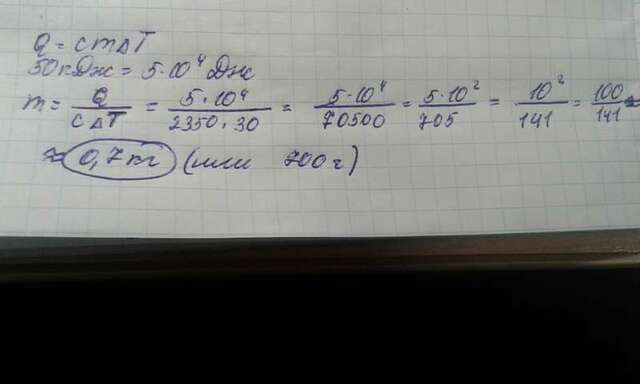 Q = cmΔT
50кДж = 5·10⁴ Дж
m = Q/cΔT = 5·10⁴/2350·30 = 5·10⁴/70500 = 5·10²/705 = 10²/141 = 100/141 ≈
≈ 0,7кг (или 700г)